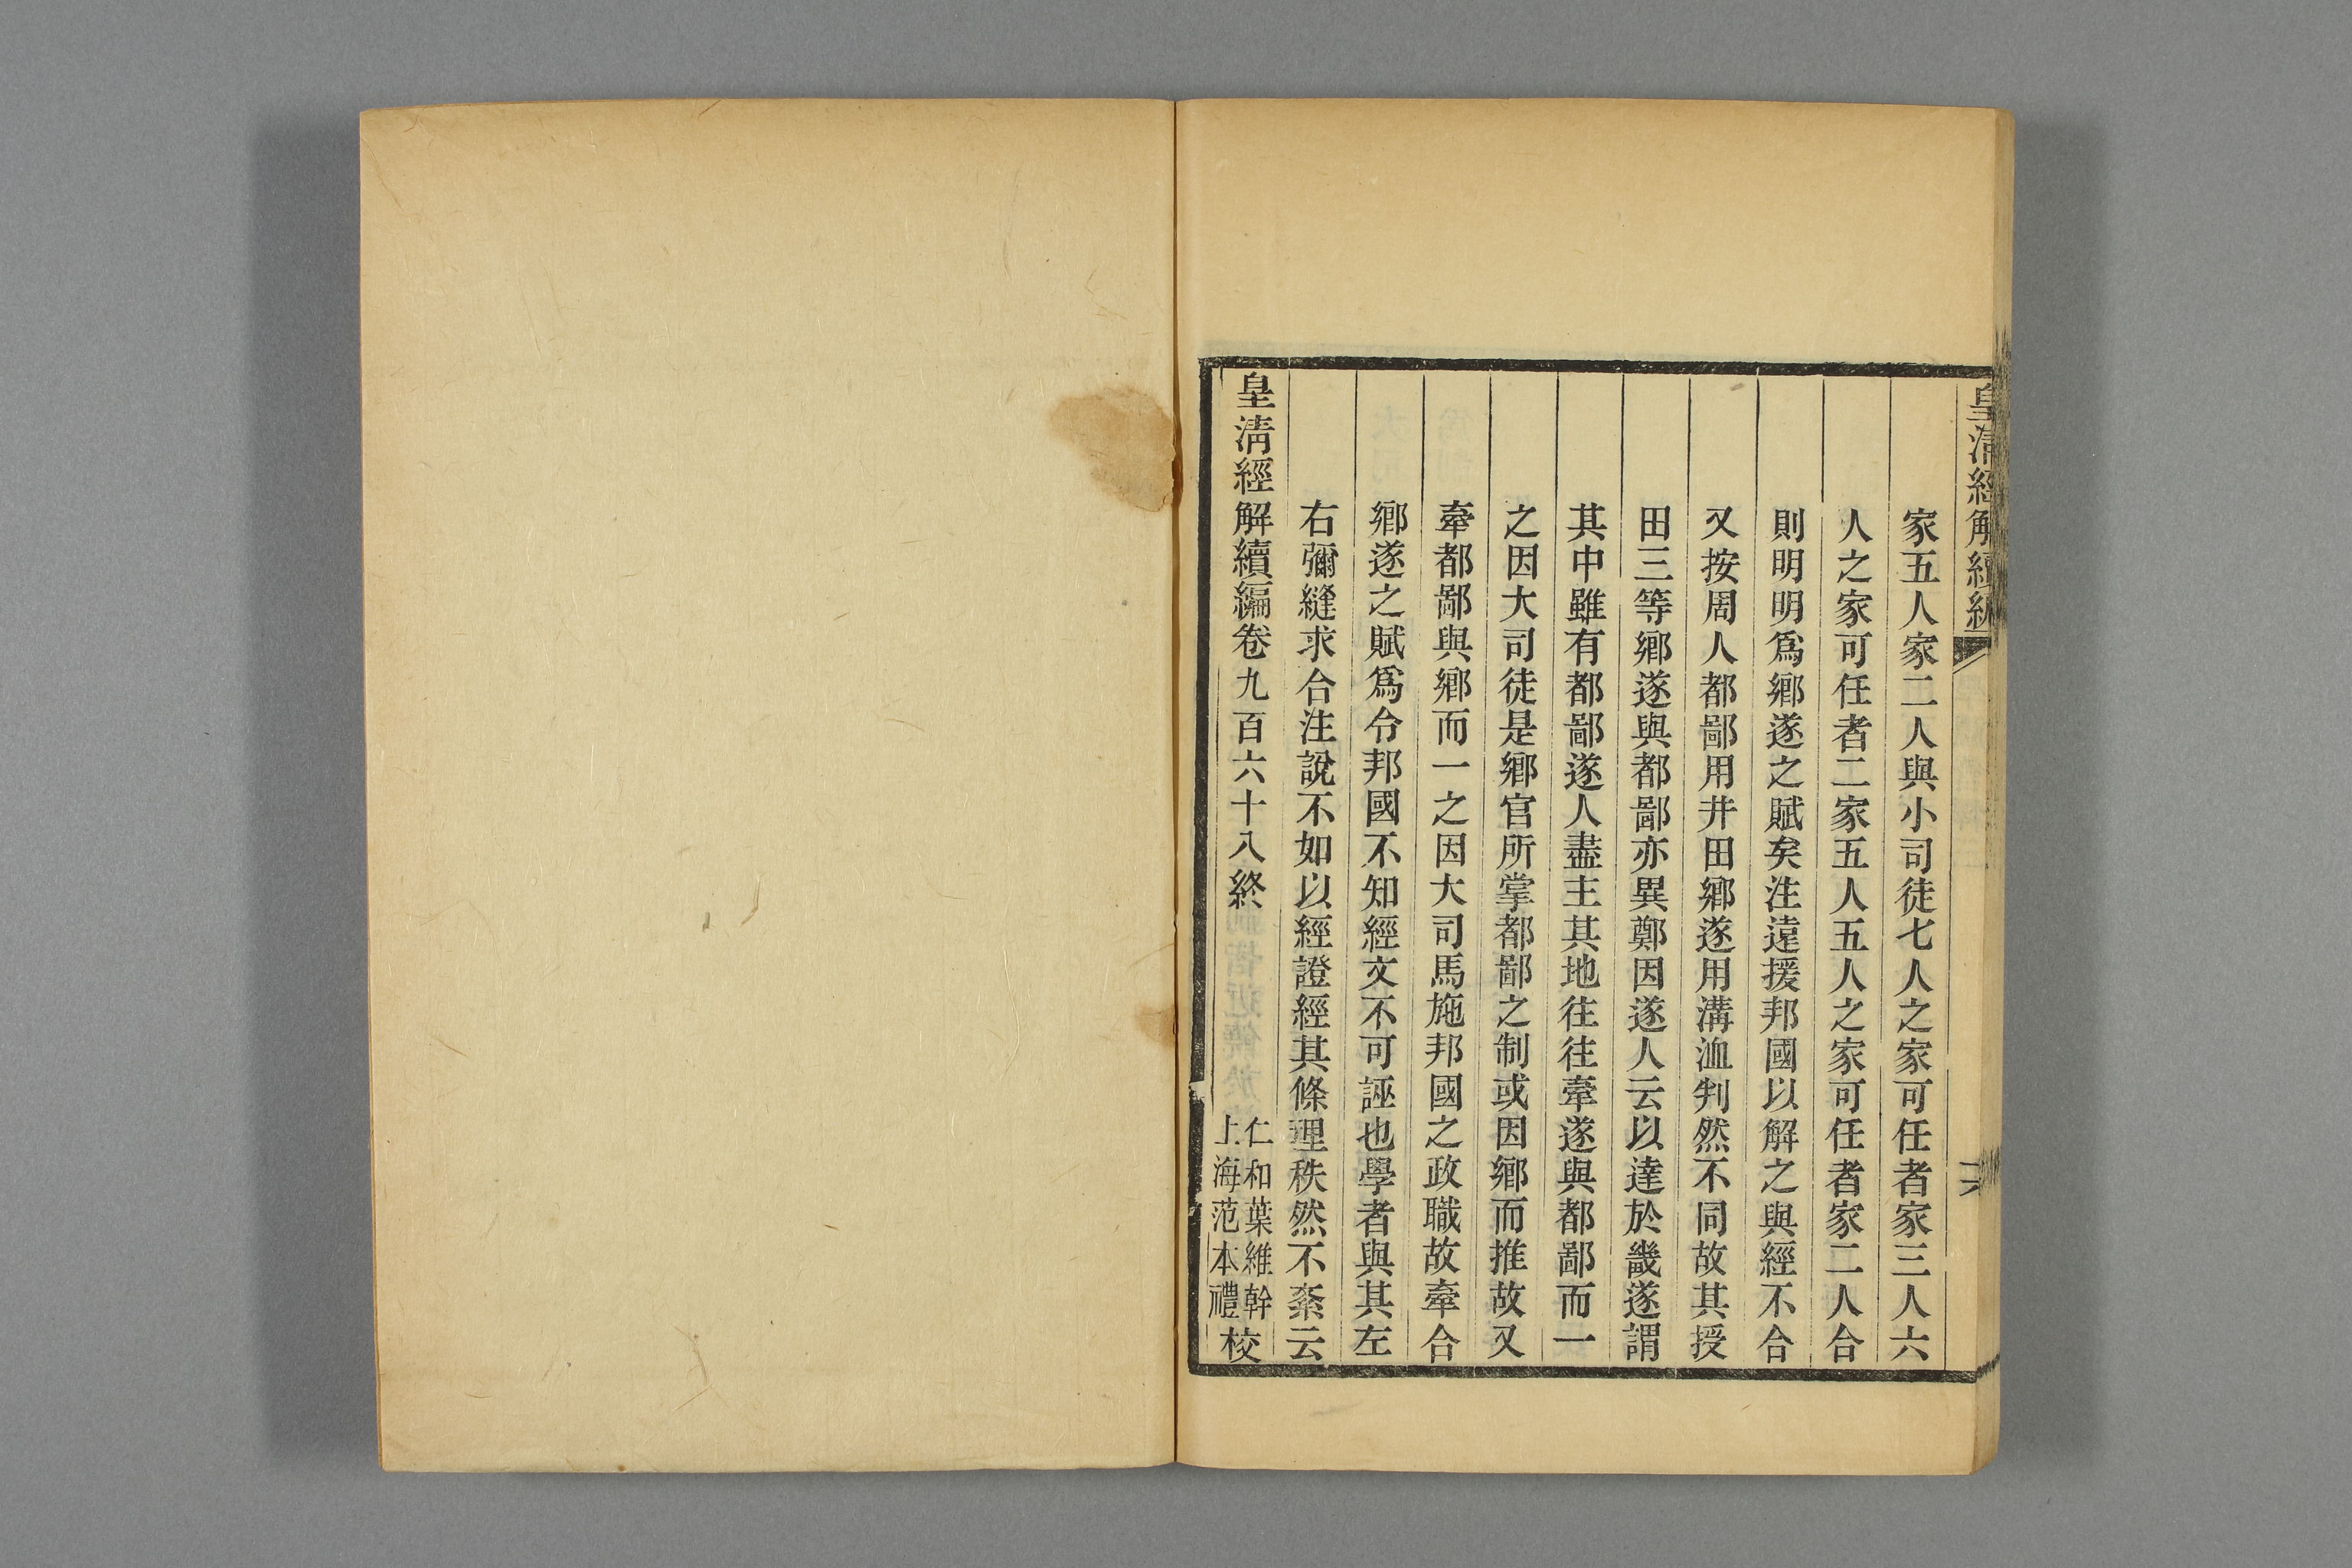 皇清經解續編
家五人家二人與小司徒七人之家可任者家三人六
人之家可任者二家五人五人之家可任者家二人合
則明明爲鄉遂之賦矣注遠援邦國以解之與經不合
又按周人都鄙用井田鄉遂用溝洫判然不同故其授
田三等鄉遂與都鄙亦異鄭因遂人云以達於畿遂謂
其中雖有都鄙遂人盡主其地往往牽遂與都鄙而一
之因大司徒是鄉官所掌都鄙之制或因鄉而推故又
牽都鄙與鄉而一之因大司馬施邦國之政職故牽合
鄉遂之賦爲令邦國不知經文不可誣也學者與其左
右彌縫求合注說不如以經證經其條理秩然不紊云
皇清經解續編卷九百六十八終
仁和葉維幹
上海范本禮
校